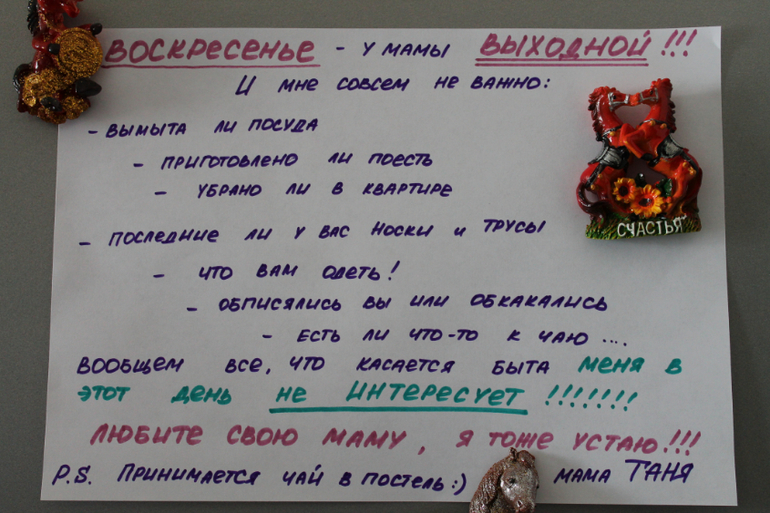 ВОСКРЕСЕНЬЕ - У МАМЫ ВЫХОДНОЙ!!!
И МНЕ СОВСЕМ НЕ ВАЖНО:
- ВЫМЫТА ЛИ ПОСУДА
- ПРИГОТОВЛЕНО ЛИ ПОЕСТЬ
- УБРАНО ЛИ В КВАРТИРЕ
- ПОСЛЕДНИЕ ЛИ У ВАС НОСКИ И ТРУСЫ
- ЧТО ВАМ ОДЕТЬ!
- ОБПИСЯЛИСЬ ВЫ ИЛИ ОБКАКАЛИСЬ
- ЕСТЬ ЛИ ЧТО-ТО К ЧАЮ....
ВООБЩЕМ ВСЕ, ЧТО КАСАЕТСЯ БЫТА МЕНЯ В
ЭТОТ ДЕНЬ НЕ ИНТЕРЕСУЕТ!!!!!!!
ЛЮБИТЕ СВОЮ МАМУ, Я ТОЖЕ УСТАЮ!!!
P.S. ПРИНИМАЕТСЯ ЧАЙ В ПОСТЕЛЬ:) МАМА ТАНЯ
СЧАСТЬЯ